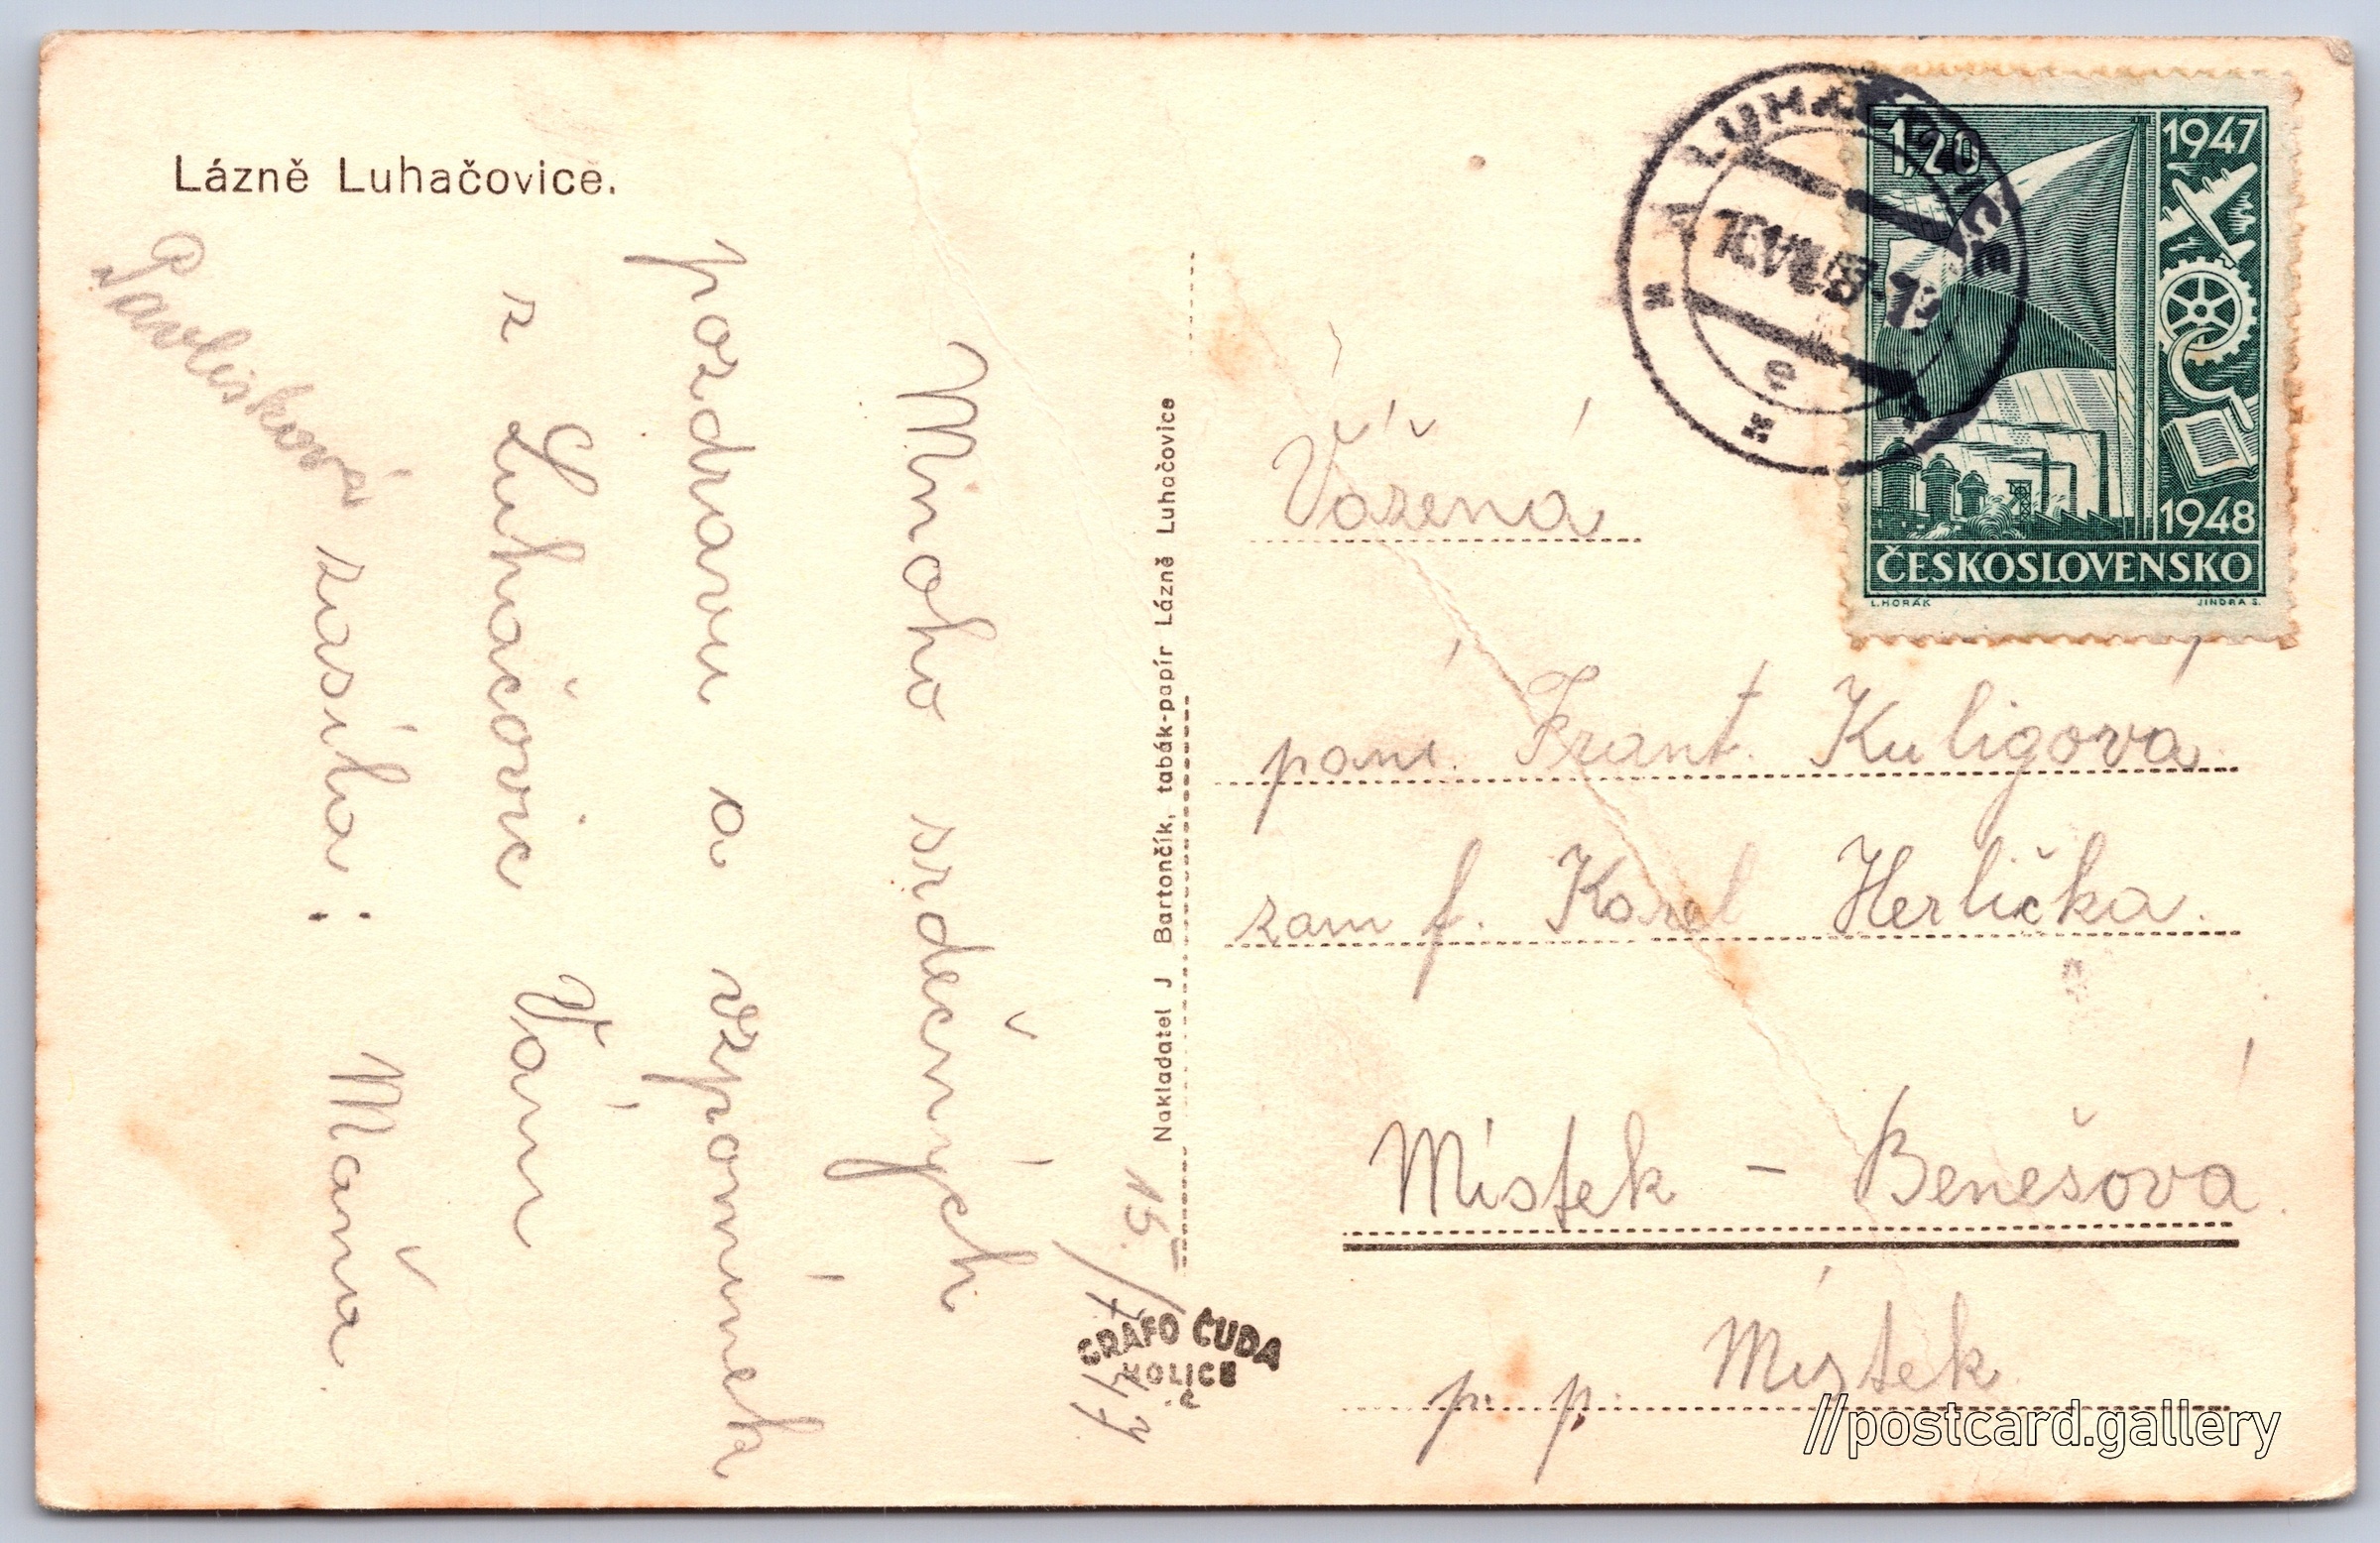 Lázně Luhačovice.
Mnoho srdečných
pozdravu a vzpomínek
z Luhačovic Vám
zasílá: Máňa
Pavlisková
15./7. 47
Nakladatel J Bartončík, tabák-papír Lázně Luhačovice
GRAFO ČUDA
HOLICE
Č
LUHAČOVICE
e
1,20
1947
1948
ČESKOSLOVENSKO
L.HORÁK
JINDRA S.
Vážená
paní. Frant. Kuligová
zam f. Karel Herlička.
Místek - Benešová.
p. p. Místek
//postcard.gallery